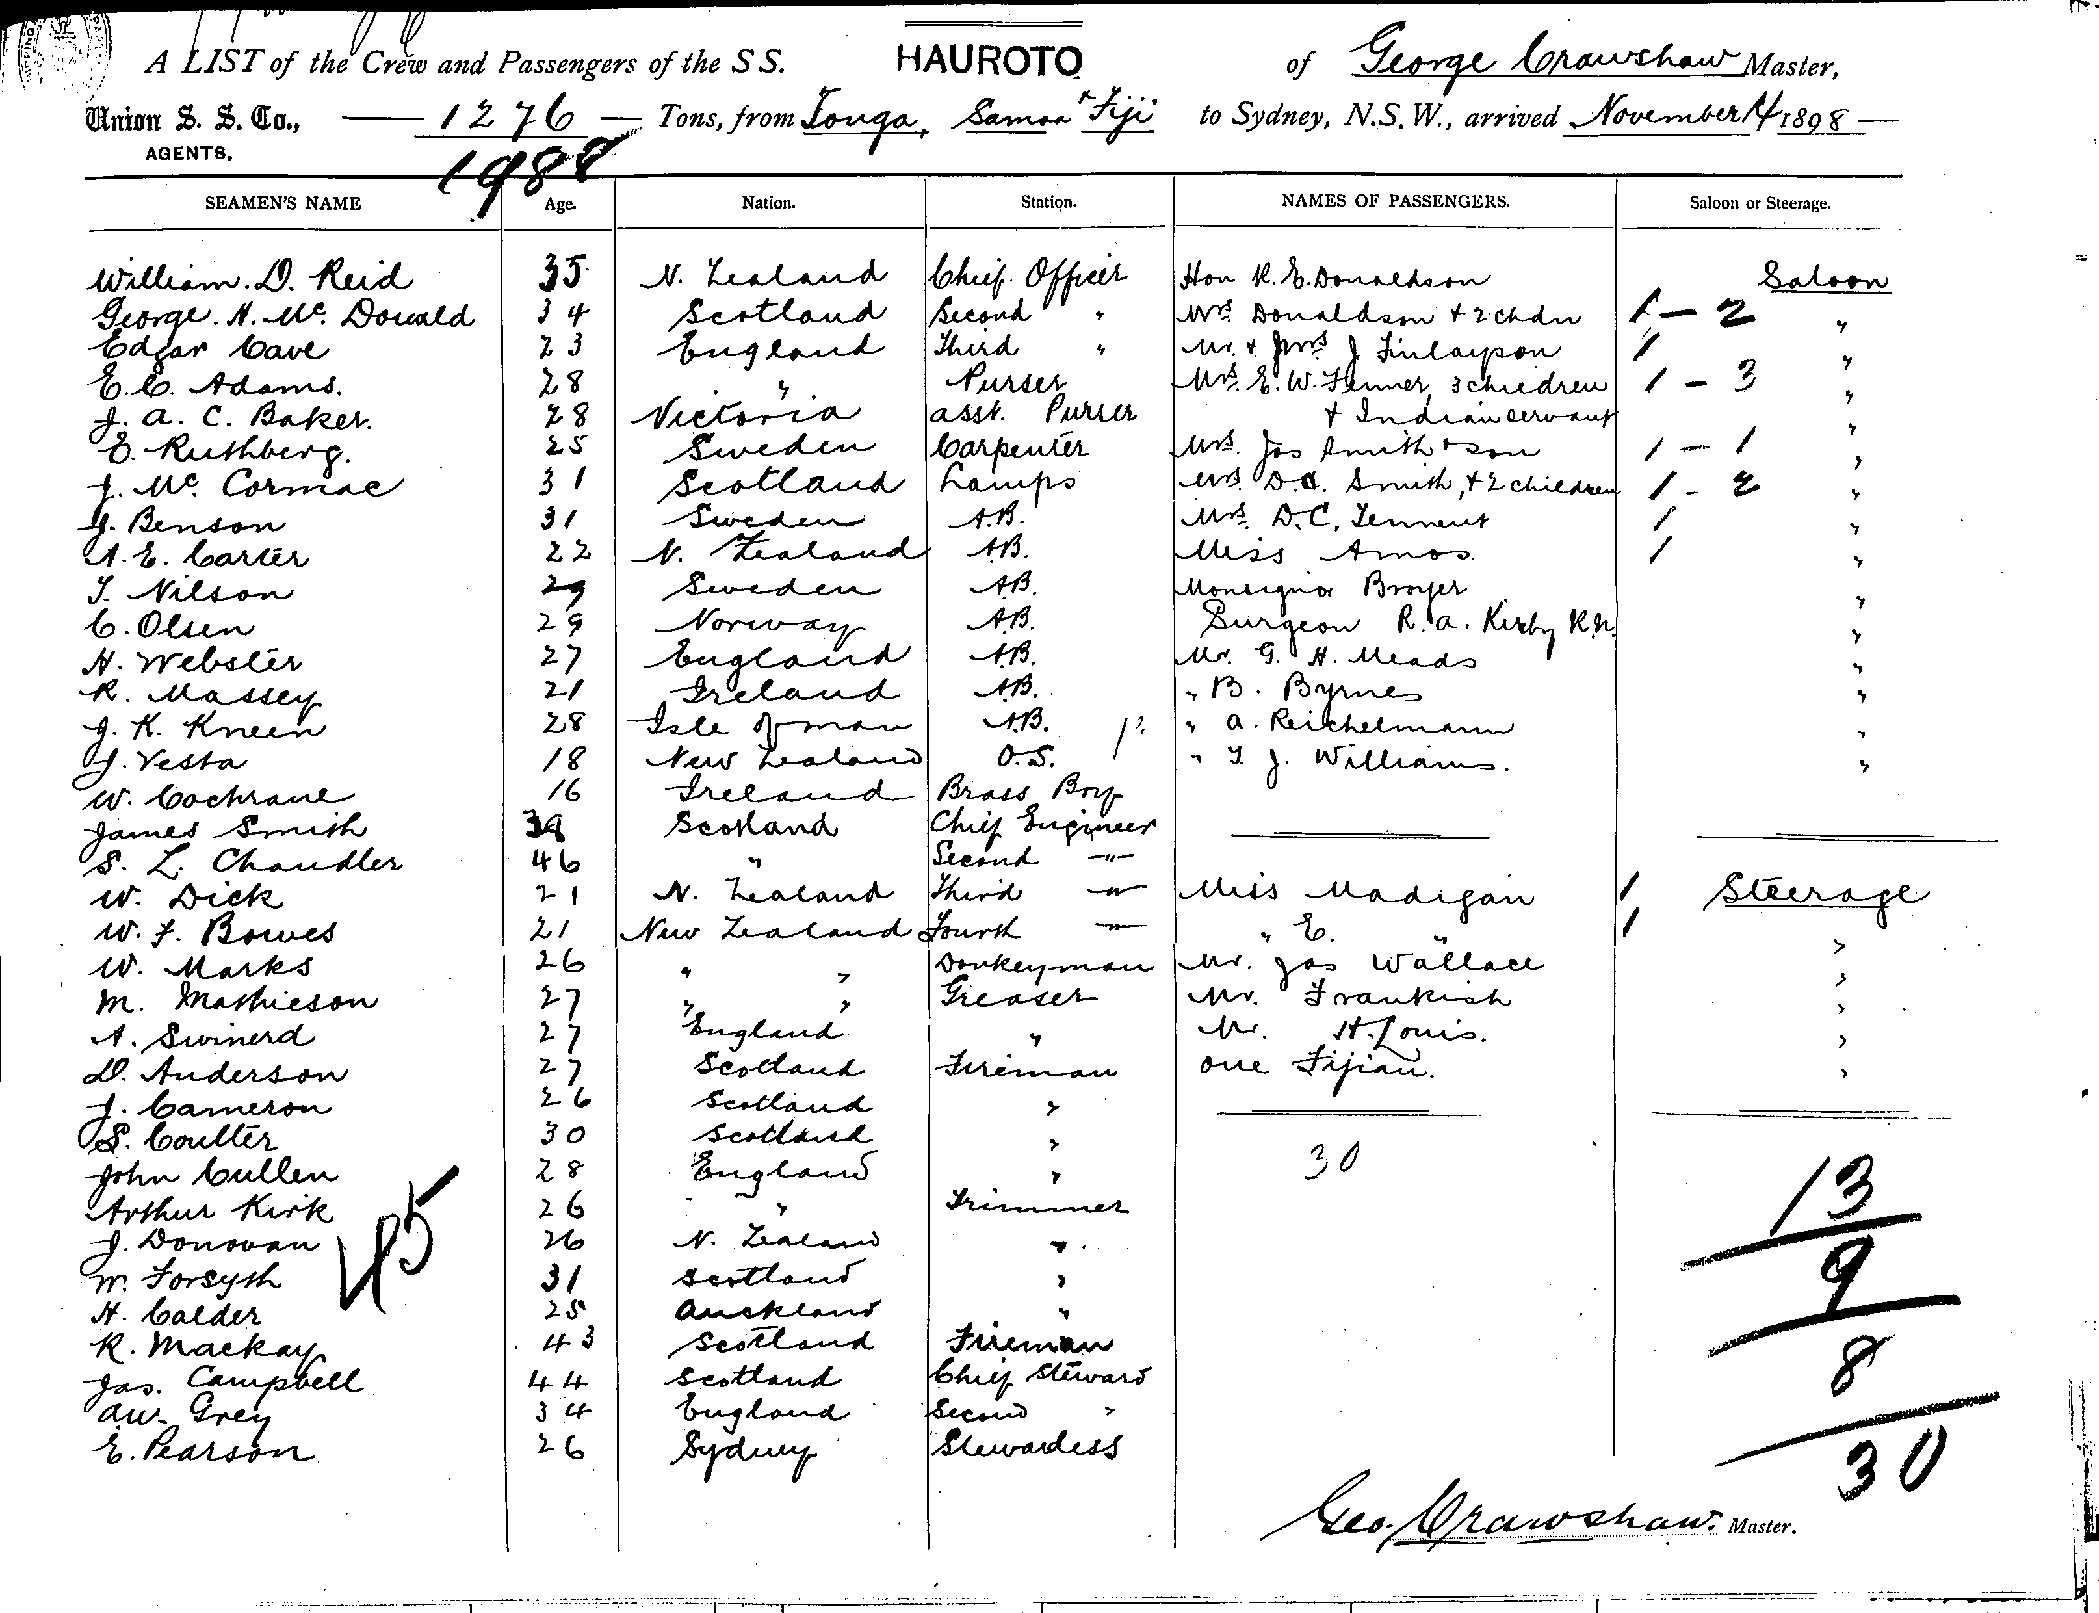 A LIST of the Crew and Passengers of the SS. HAUROTO of George Crawshaw Master,
Union S. S. Co., — 1276 — Tons, from Tonga, Samoa + Fiji to Sydney, N.S.W., arrived November 14 1898 —
AGENTS.
1988
SEAMEN'S NAME Age. Nation. Station. NAMES OF PASSENGERS. Saloon or Steerage.
William. D. Reid 35 N. Zealand Chief Officer Hon R. E. Donaldson Saloon
George. H. Mc. Donald 34 Scotland Second " Mrs Donaldson + 2 chdn 1 – 2 "
Edgar Cave 23 England Third " Mr. + Mrs J Finlayson 1 "
E. C. Adams. 28 " Purser Mrs. E. W. Fenner, 3 children 1 – 3 "
J. A. C. Baker. 28 Victoria asst. Purser + Indian servant "
E. Ruthberg. 25 Sweden Carpenter Mrs. Jas Smith + son 1 – 1 "
J. Mc. Cormac 31 Scotland Lamps Mrs D. C. Smith, + 2 children 1 - 2 "
J. Benson 31 Sweden A.B. Mrs. D. C. Tennent 1 "
A. E. Carter 22 N. Zealand A.B. Miss Amos 1 "
T. Nilson 29 Sweden A.B. Monsignor Broyer "
C. Olsen 29 Norway A.B. Surgeon R. A. Kirby R.N. "
H. Webster 27 England A.B. Mr. G. H. Meads "
R. Massey 21 Ireland A.B. " B. Byrnes "
J. K. Kneen 28 Isle of man A.B. " A. Reichelmann "
J. Vesta 18 New Zealand O.S. " T. J. Williams. "
W. Cochrane 16 Ireland Brass Boy
James Smith Scotland Chief Engineer
S. L. Chandler 46 " Second —"—
W. Dick 21 N. Zealand Third —"— Miss Madigan 1 Steerage
W. F. Bowes 21 New Zealand Fourth —"— " E. " 1 "
W. Marks 26 " " Donkeyman Mr. Jas Wallace "
M. Mathieson 27 " " Greaser Mr. Frankish "
A. Swinerd 27 England " Mr. H. Louis. "
D. Anderson 27 Scotland Fireman one Fijian. "
J. Cameron 26 Scotland "
S. Coulter 30 Scotland "
John Cullen 28 England " 30
Arthur Kirk 26 " Trimmer 13
J. Donovan 26 N. Zealand "
W. Forsyth 31 Scotland " 9
H. Calder 25 Auckland "
45
R. Mackay 43 Scotland Fireman 8
Jas. Campbell 44 Scotland Chief Steward
AW. Grey 34 England Second "
E. Pearson 26 Sydney Stewardess 30
Geo. Crawshaw. Master.